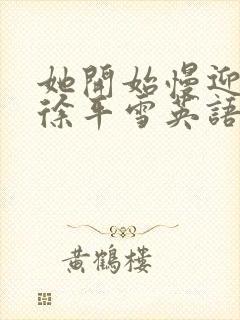 她開始慢迎
徐年雪英語
黃鶴樓